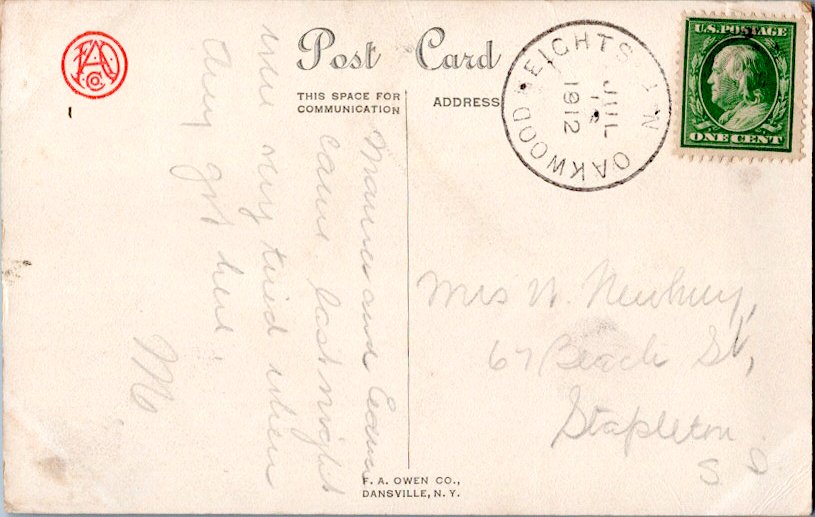 Post Card
THIS SPACE FOR
COMMUNICATION
ADDRESS
OAKWOOD HEIGHTS N.Y.
JUL
12
1912
U.S. POSTAGE
ONE CENT
Mamma and Edna
came last night
were very tired when
they got here.
M
Mrs W. Newbury,
67 Beach St,
Stapleton
S
F. A. OWEN CO.,
DANSVILLE, N. Y.